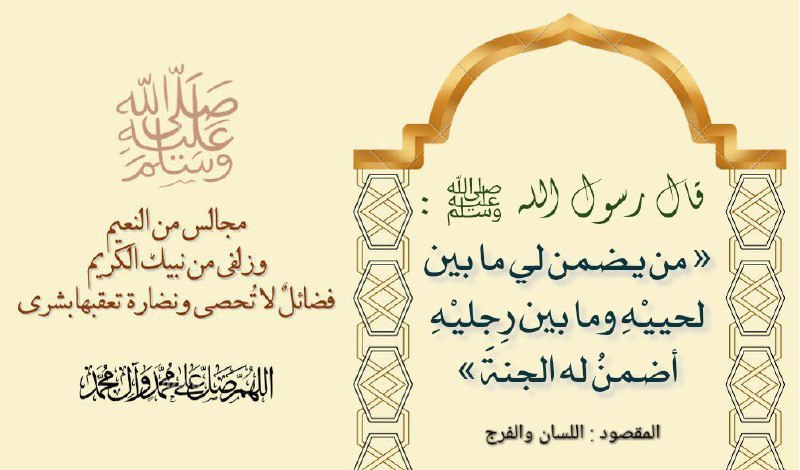 قال رسول الله ﷺ :
« من يضمن لي ما بين
لحييْهِ وما بين رِجليْهِ
أضمنُ له الجنةَ »
المقصود : اللسان والفرج
صلى الله عليه وسلم
مجالس من النعيم
وزلفى من نبيك الكريم
فضائلٌ لا تُحصى ونضارة تعقبها بشرى
اللهم صل على محمد وآل محمد